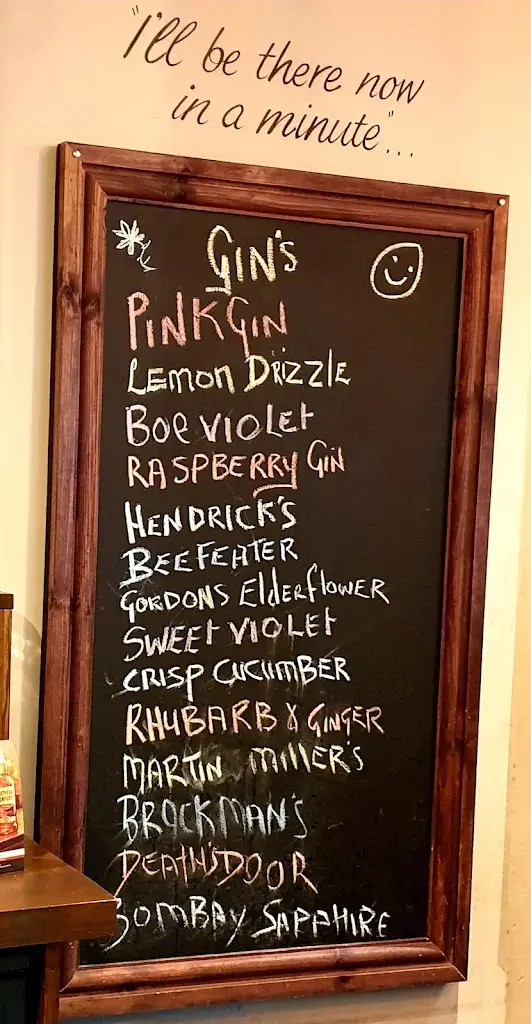 "I'll be there now
in a minute"...
GIN'S
PINK GIN
LEMON DRIZZLE
BOE VIOLET
RASPBERRY GIN
HENDRICK'S
BEEFEATER
GORDONS ElderflOWER
SWEET VIOLET
CRISP CUCUMBER
RHUBARB & GINGER
MARTIN MILLER'S
BROCKMAN'S
DEATH'S DOOR
BOMBAY SAPPHIRE